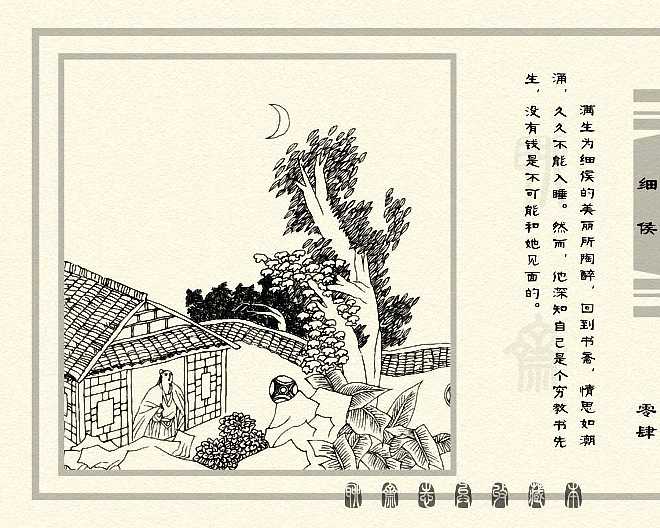 细侯
零肆
满生为细侯的美丽所陶醉，回到书斋，情思如潮
涌，久久不能入睡。然而，他深知自己是个穷教书先
生，没有钱是不可能和她见面的。